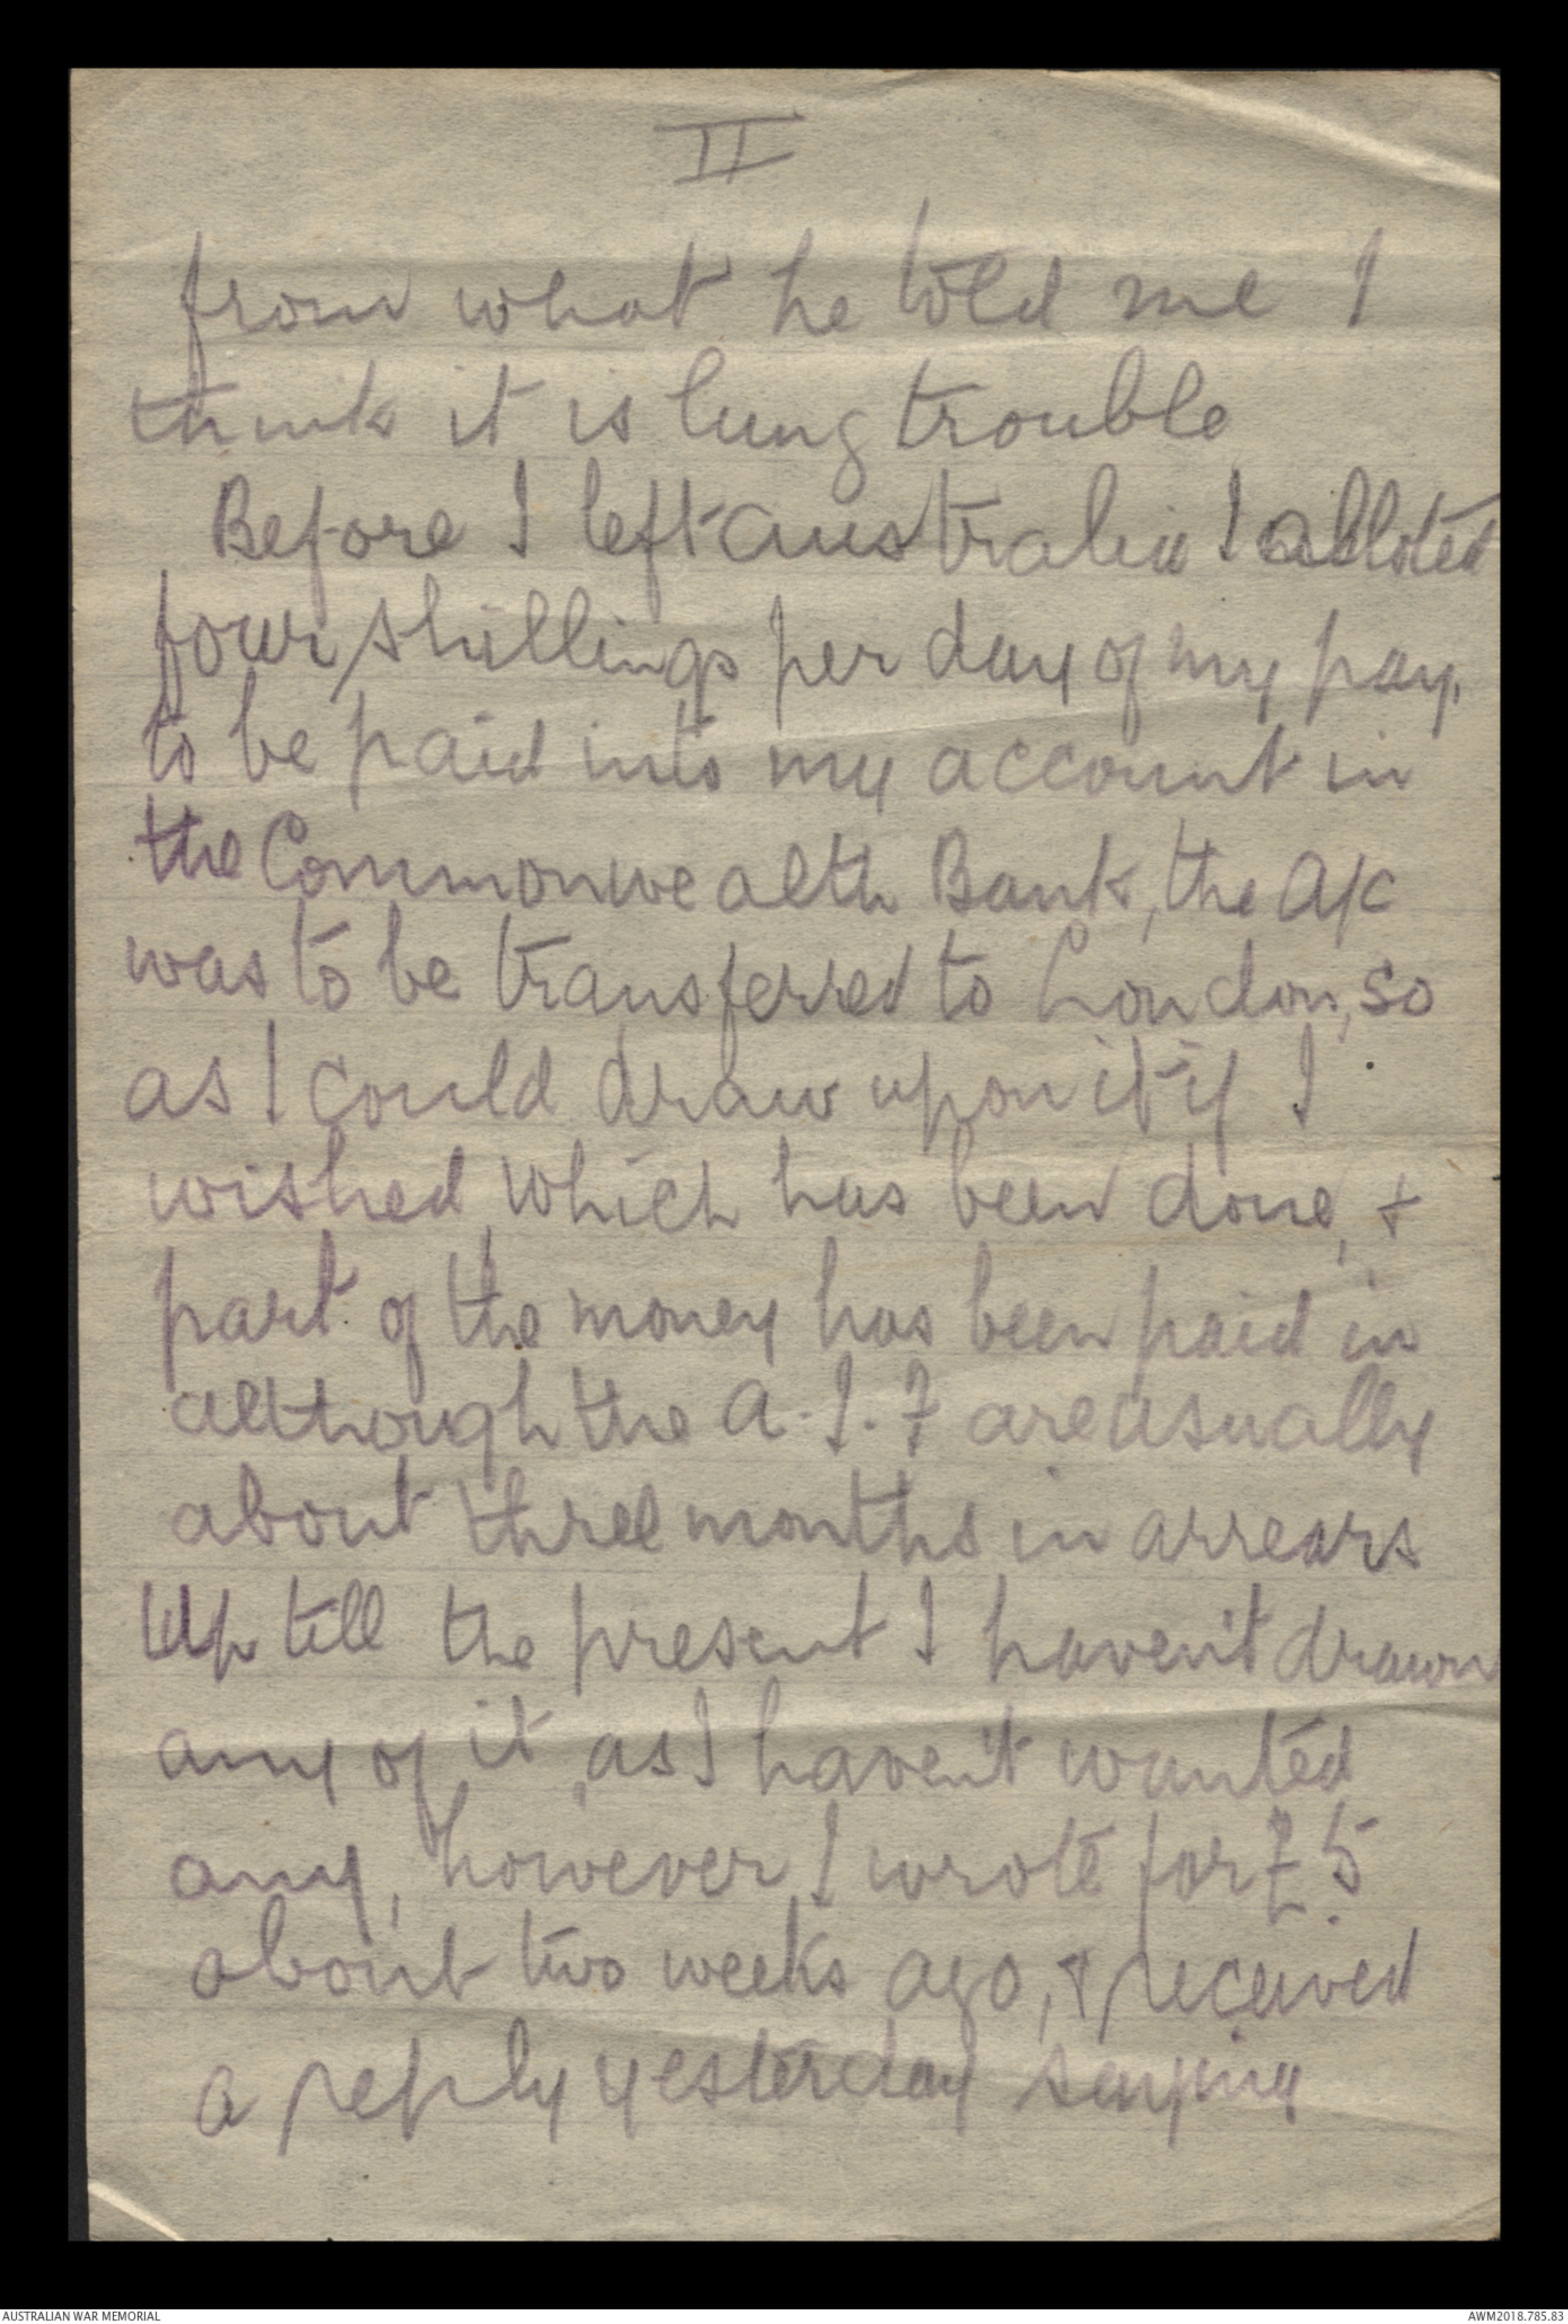 II
from what he told me I
think it is lung trouble
Before I left Australia I alloted
four shillings per day of my pay,
to be paid into my account in
the Commonwealth Bank, the A/c
was to be transferred to London, so
as I could draw upon it if I
wished, which has been done, +
part of the money has been paid in
although the A.I.F are usually
about three months in arrears
Up till the present I haven't drawn
any of it, as I haven't wanted
any, however I wrote for £5
about two weeks ago, + received
a reply yesterday saying
AUSTRALIAN WAR MEMORIAL
AWM2018.785.83